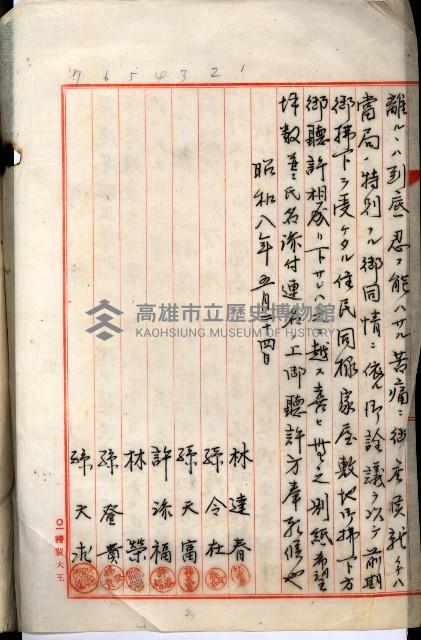 離ルハ到底忍ヒ能ハサル苦痛ニ御座候就テハ
當局ノ特別ナル御同情ニ依リ御詮議ヲ以テ前期
御拂下ヲ受ケタル住民同樣家屋敷地御拂下方
御聽許相成リ下サレハ之ニ越ス喜ヒ無之別紙希望
坪數並ニ氏名添付連名ノ上御聽許方奉願候也
昭和八年五月二十四日
林達春
孫令在
孫天富
許添福
林榮
孫登貴
孫天求
7 6 5 4 3 2 1
高雄市立歷史博物館
KAOHSIUNG MUSEUM OF HISTORY